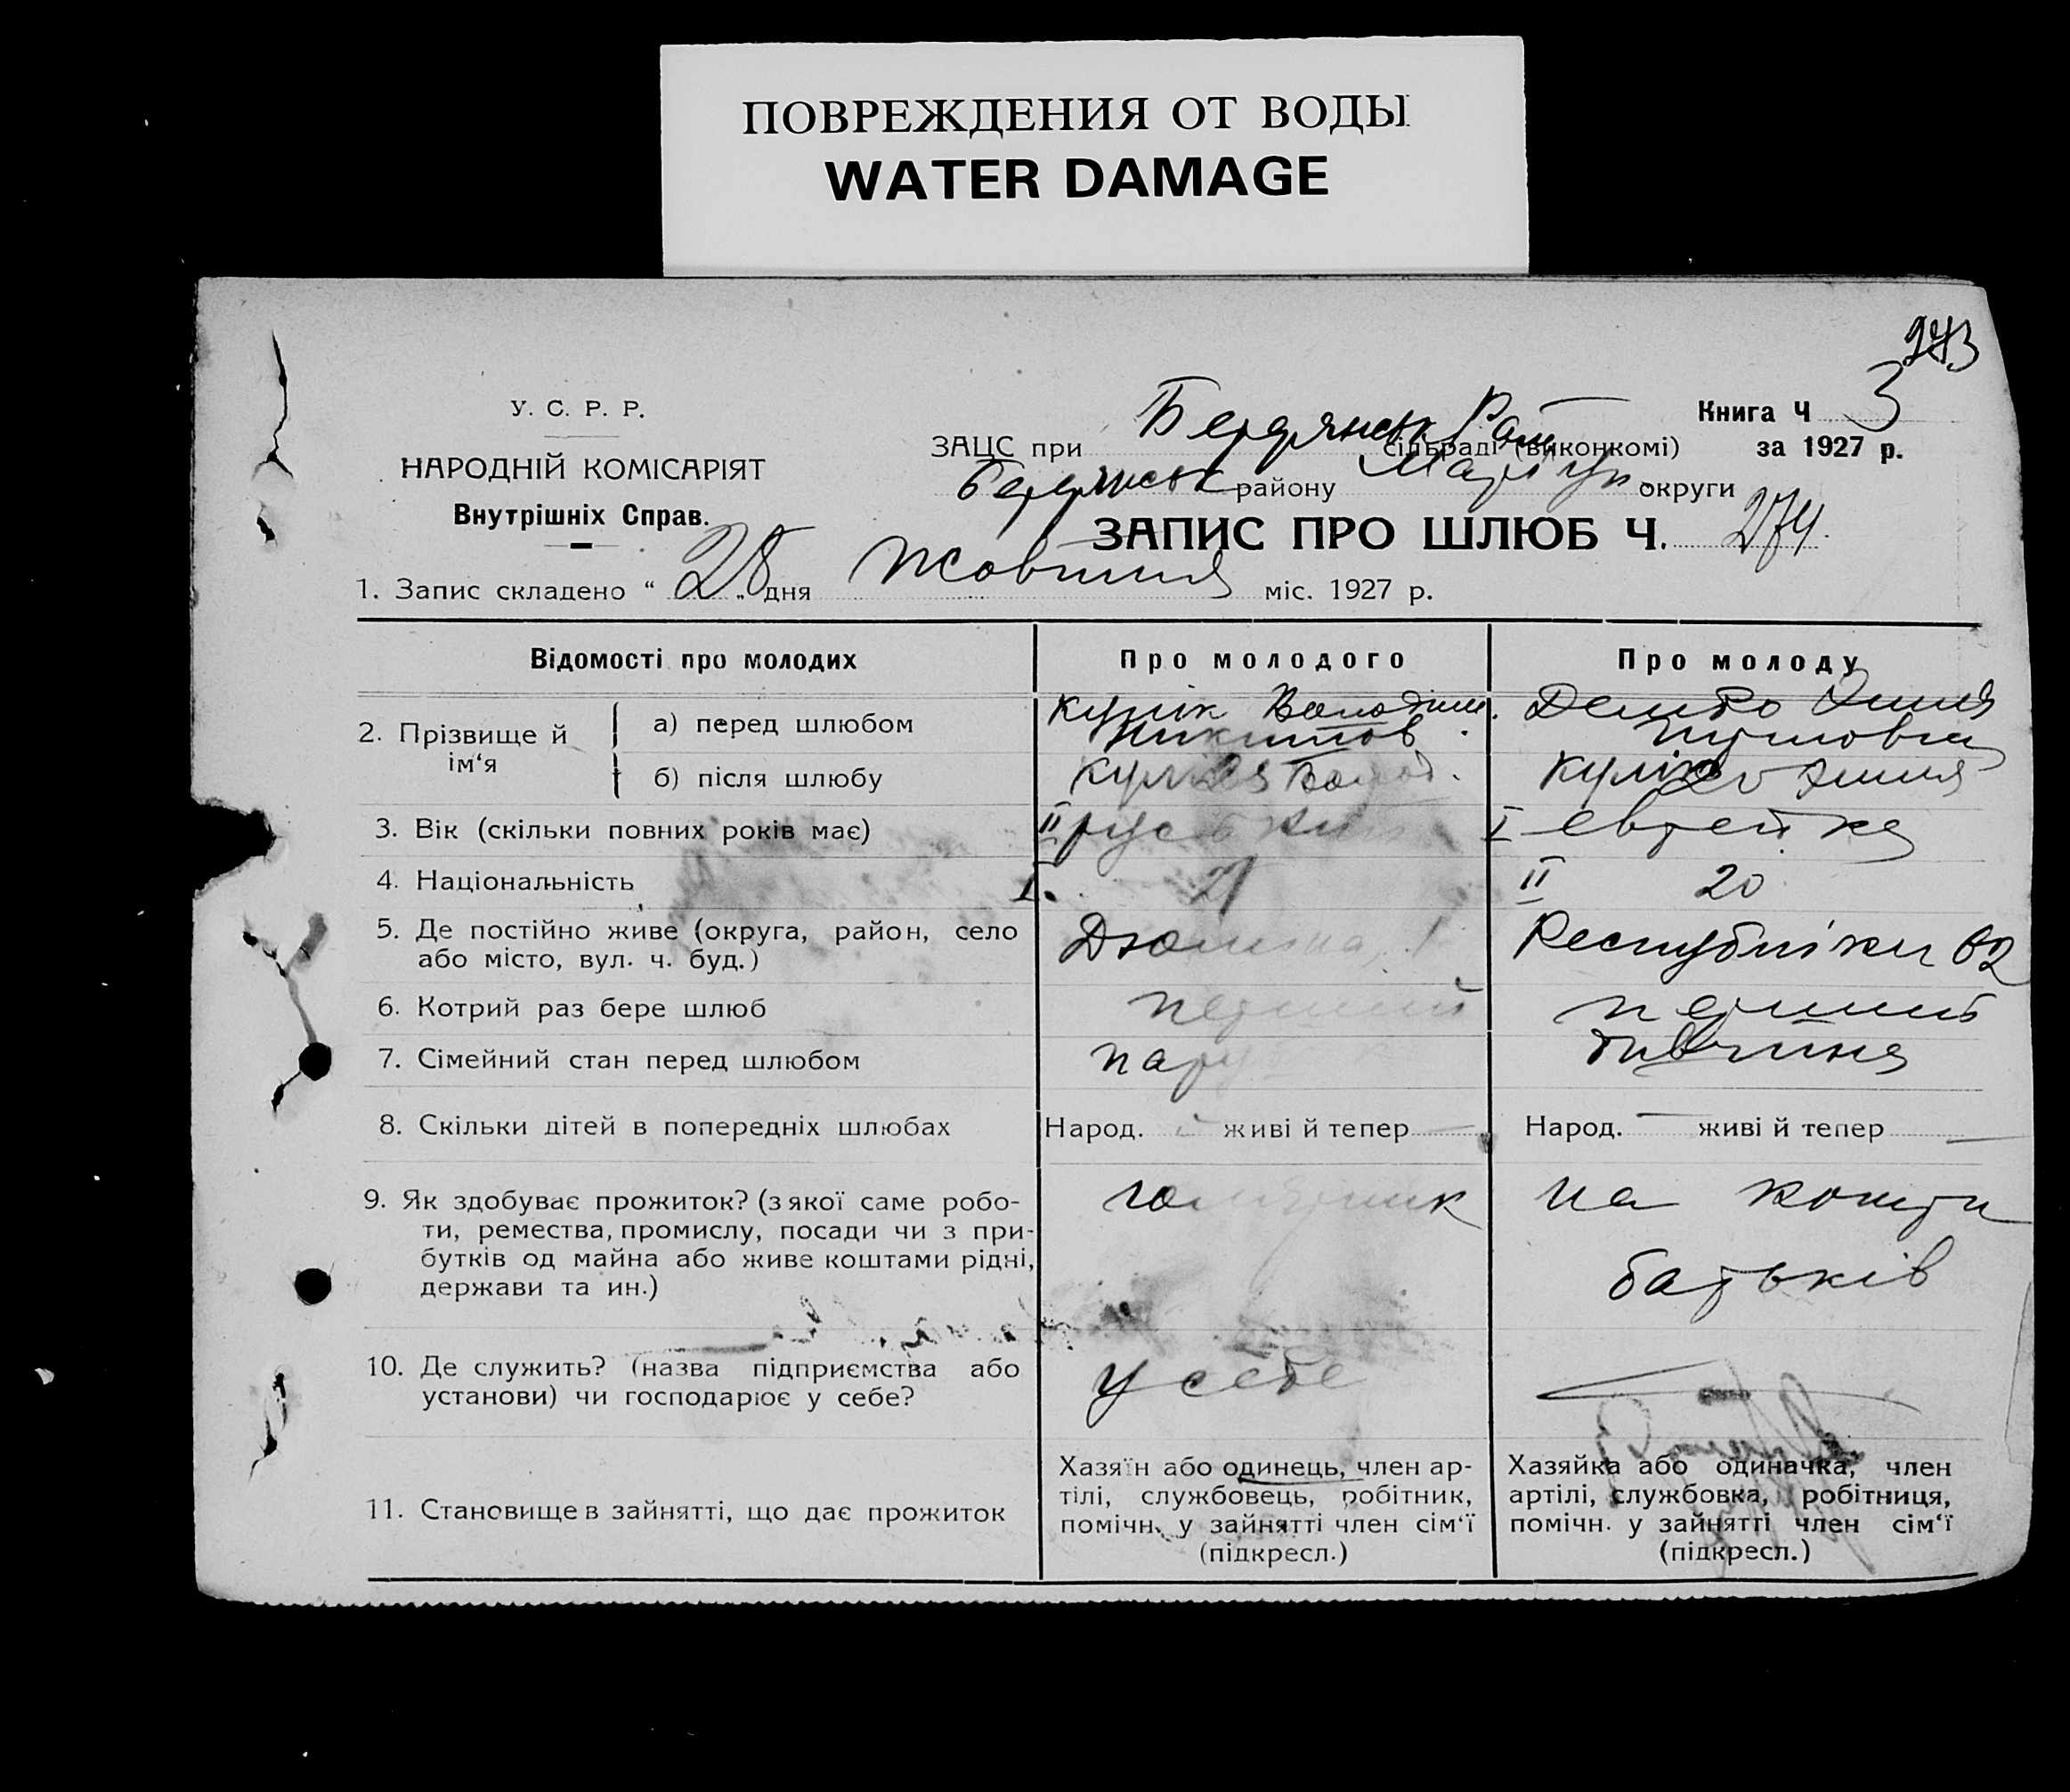 ПОВРЕЖДЕНИЯ ОТ ВОДЫ
WATER DAMAGE
У. С. Р. Р.
НАРОДНІЙ КОМІСАРІЯТ
Внутрішніх Справ.
Книга Ч 3
за 1927 р.
ЗАЦС при Бердянськ Рай сільраді (виконкомі)
Бердянськ району Маріуп. округи
ЗАПИС ПРО ШЛЮБ Ч. 274.
1. Запис складено “ 28 „ дня Жовтня міс. 1927 р.
Відомості про молодих Про молодого Про молоду
2. Прізвище й ім‘я
а) перед шлюбом Кулік Володим.
б) після шлюбу
3. Вік (скільки повних років має) II I еврейка
4. Національність I. 21 II 20
5. Де постійно живе (округа, район, село або місто, вул. ч. буд.) Республіки 62
6. Котрий раз бере шлюб перший перший
7. Сімейний стан перед шлюбом дивчина
8. Скільки дітей в попередніх шлюбах Народ. живі й тепер — Народ. — живі й тепер —
9. Як здобуває прожиток? (з якої саме робо-
ти, ремества, промислу, посади чи з при-
бутків од майна або живе коштами рідні,
держави та ин.)
на кошти
батьків
10. Де служить? (назва підприємства або
установи) чи господарює у себе?
у себе
11. Становище в зайнятті, що дає прожиток
Хазяїн або одинець, член ар-
тілі, службовець, робітник,
помічн. у зайнятті член сім‘ї
(підкресл.)
Хазяйка або одиначка, член
артілі, службовка, робітниця,
помічн. у зайнятті член сім‘ї
(підкресл.)